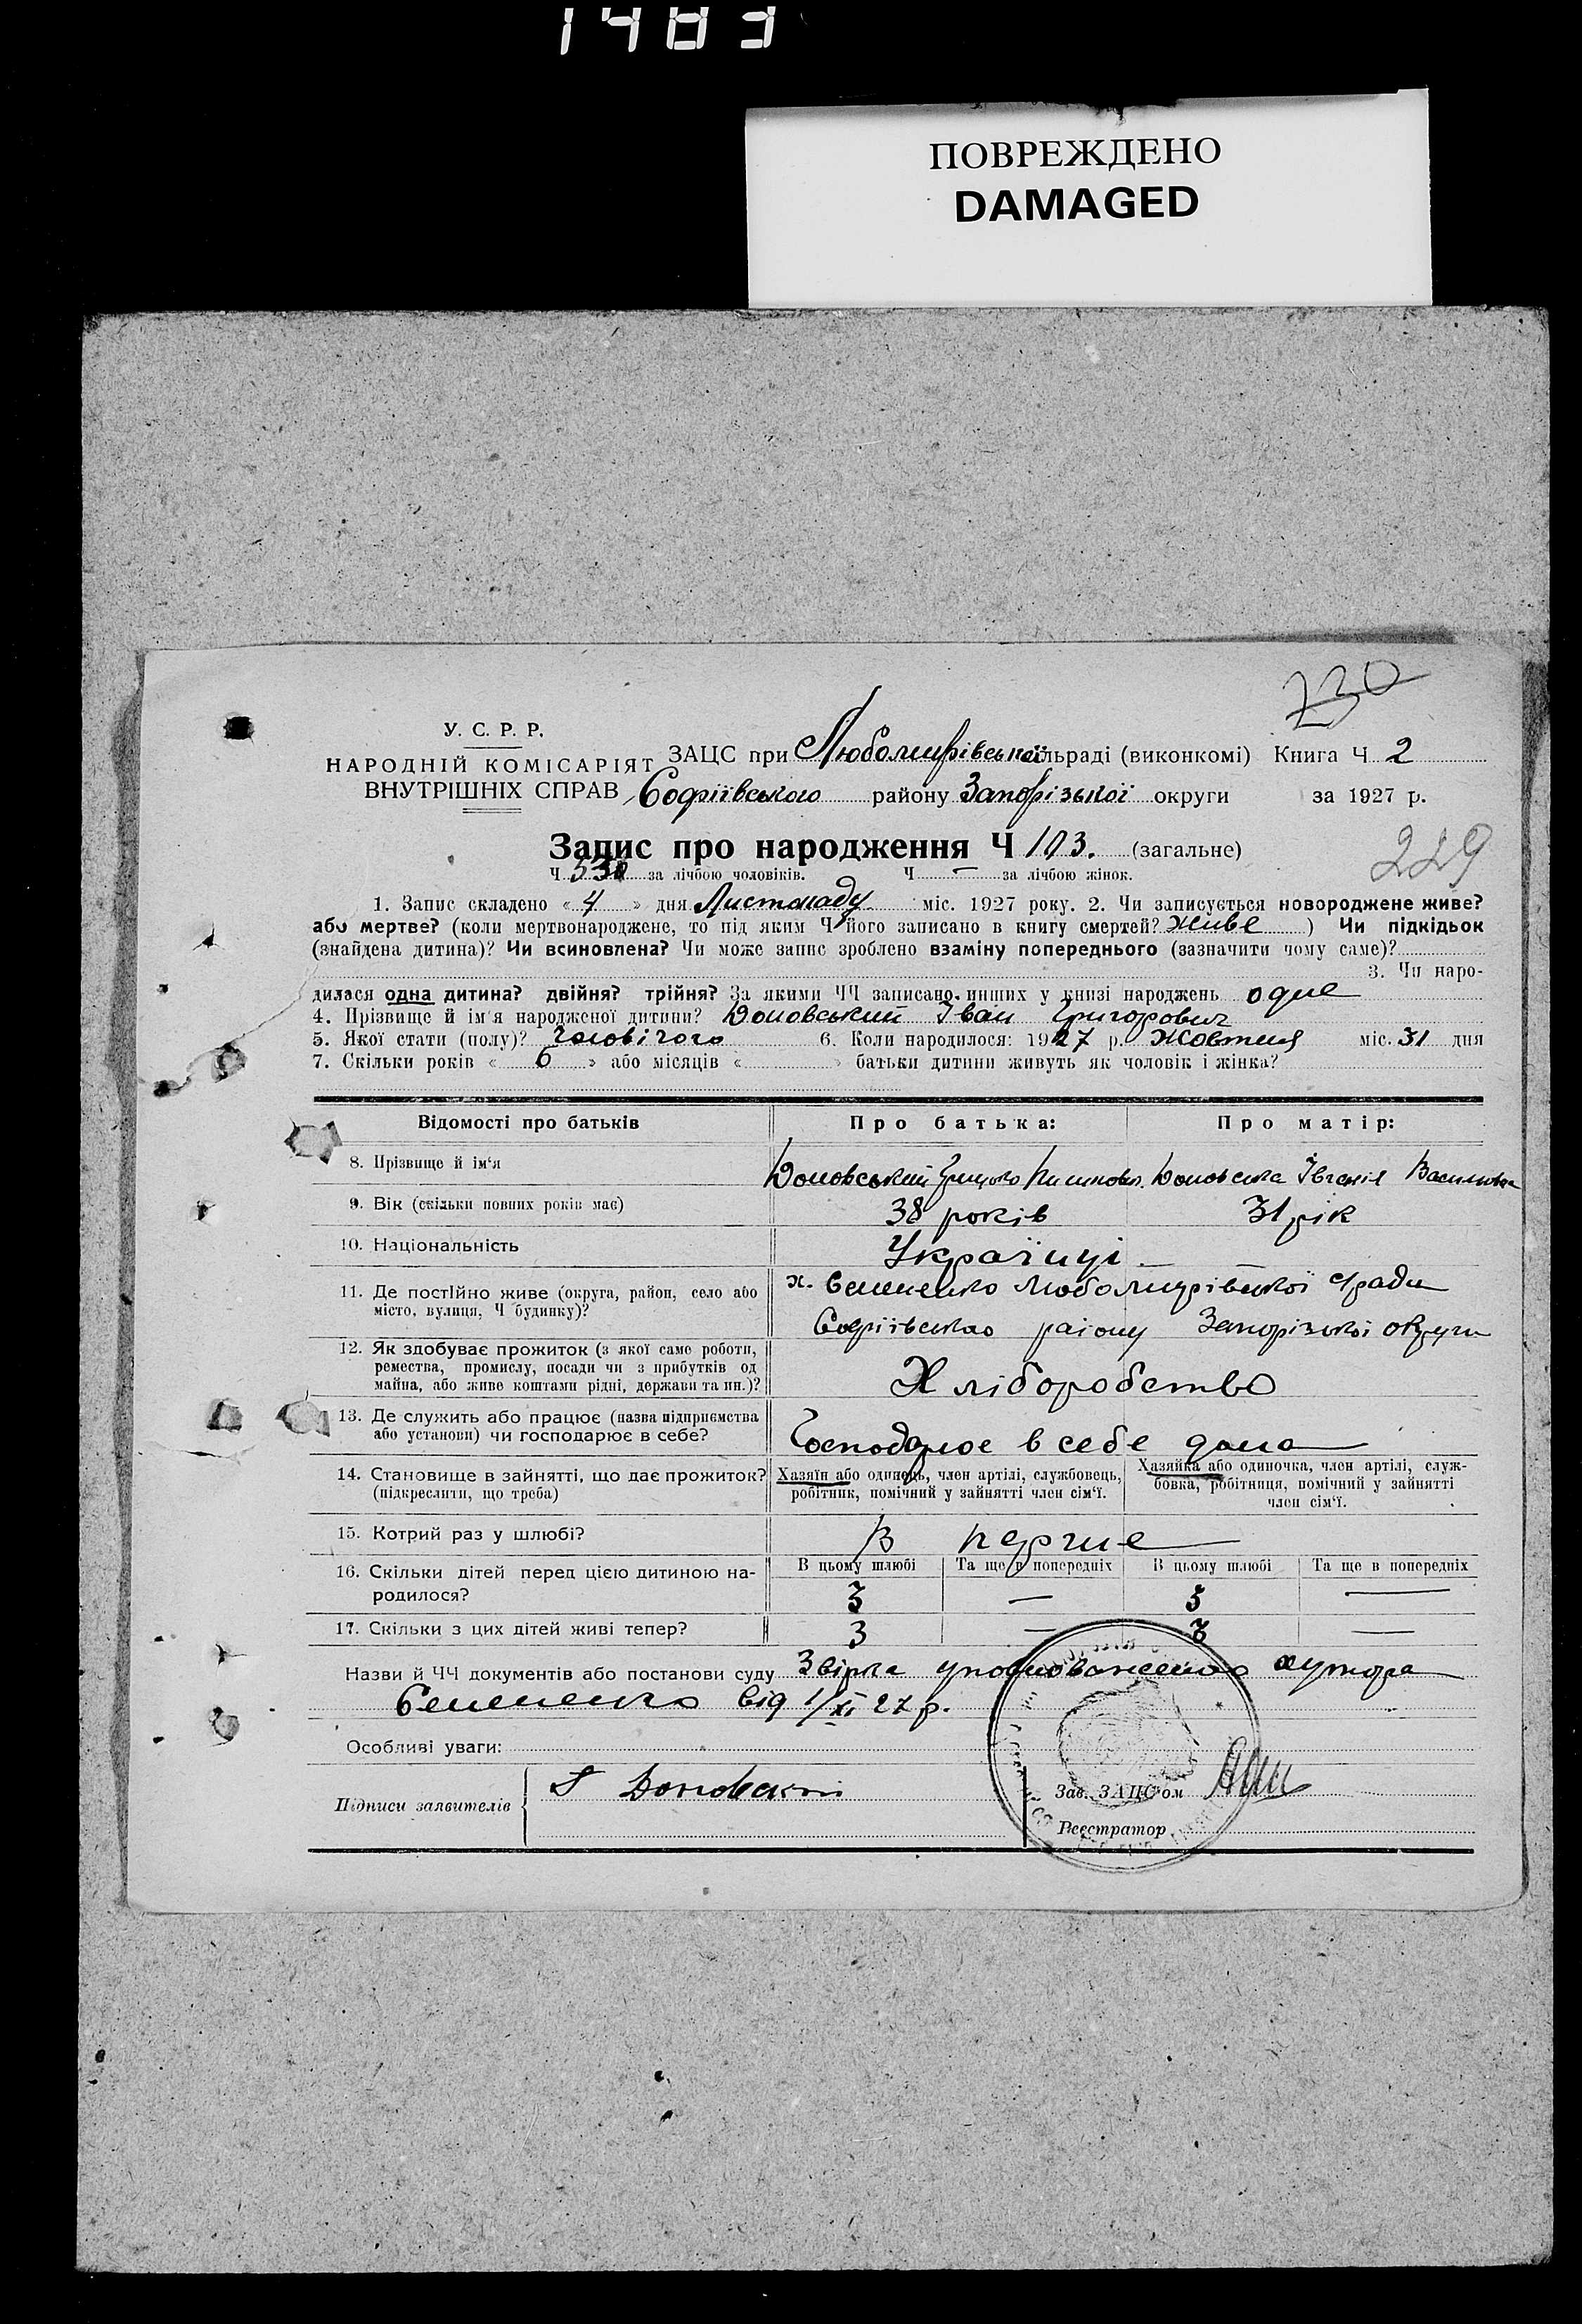 1483
ПОВРЕЖДЕНО
DAMAGED
730
У. С. Р. Р.
НАРОДНІЙ КОМІСАРІЯТ
ВНУТРІШНІХ СПРАВ
ЗАЦС при Любомирівській сільраді (виконкомі) Книга Ч 2
Софіївського району Запорізької округи за 1927 р.
Запис про народження Ч 103. (загальне)
229
Ч за лічбою чоловіків. Ч — за лічбою жінок.
1. Запис складено « 4 » дня Листопаду міс. 1927 року. 2. Чи записується новороджене живе?
або мертве? (коли мертвонароджене, то під яким Ч його записано в книгу смертей? живе ) Чи підкідьок
(знайдена дитина)? Чи всиновлена? Чи може запис зроблено взаміну попереднього (зазначити чому саме)?
3. Чи наро-
дилася одна дитина? двійня? трійня? За якими ЧЧ записано инших у книзі народжень одне
4. Прізвище й ім'я народженої дитини? Доновський Іван Григорович
5. Якої стати (полу)? Чоловічого 6. Коли народилося: 1927 р. Жовтня міс. 31 дня
7. Скільки років « 6 » або місяців « » батьки дитини живуть як чоловік і жінка?
Відомості про батьків Про батька: Про матір:
8. Прізвище й ім'я Доновський Грицько Доновська Івгенія Василівна
9. Вік (скільки повних років має) 38 років 31 рік
10. Національність Українці —
11. Де постійно живе (округа, район, село або
місто, вулиця, Ч будинку)?
х. Семененко Любомирівської с/ради
Софіївського району Запорізької округи
12. Як здобуває прожиток (з якої саме роботи,
ремества, промислу, посади чи з прибутків од
майна, або живе коштами рідні, держави та ин.)?
Хліборобство
13. Де служить або працює (назва підприємства
або установи) чи господарює в себе?
Господарює в себе дома
14. Становище в зайнятті, що дає прожиток?
(підкреслити, що треба)
Хазяїн або одинець, член артілі, службовець,
робітник, помічний у зайнятті член сім'ї.
Хазяйка або одиночка, член артілі, служ-
бовка, робітниця, помічний у зайнятті
член сім'ї.
15. Котрий раз у шлюбі? В перше
16. Скільки дітей перед цією дитиною на-
родилося?
В цьому шлюбі Та ще в попередніх В цьому шлюбі Та ще в попередніх
3 — 3 —
17. Скільки з цих дітей живі тепер? 3 — 3 —
Назви й ЧЧ документів або постанови суду Звірка уповноваженого хутора
Семененко від 1/XI 27 р.
Особливі уваги:
Підписи заявителів Г Доновский
Зав. ЗАЦС'ом
Реєстратор